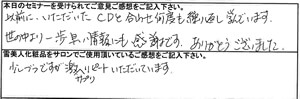 本日のセミナーを受けられてご意見ご感想をご記入下さい。
以前に、いただいた CDと合わせ何度も繰り返し学んでいます。
世の中より一歩早い情報にも感謝です。ありがとうございました。
雪美人化粧品をサロンでご使用頂いているご感想をご記入下さい。
少しづつですが リピートいただいています。
サプリ